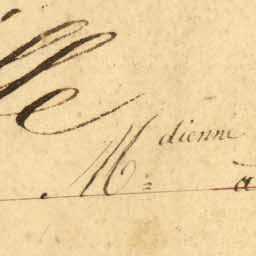 lle
M. dienne
a